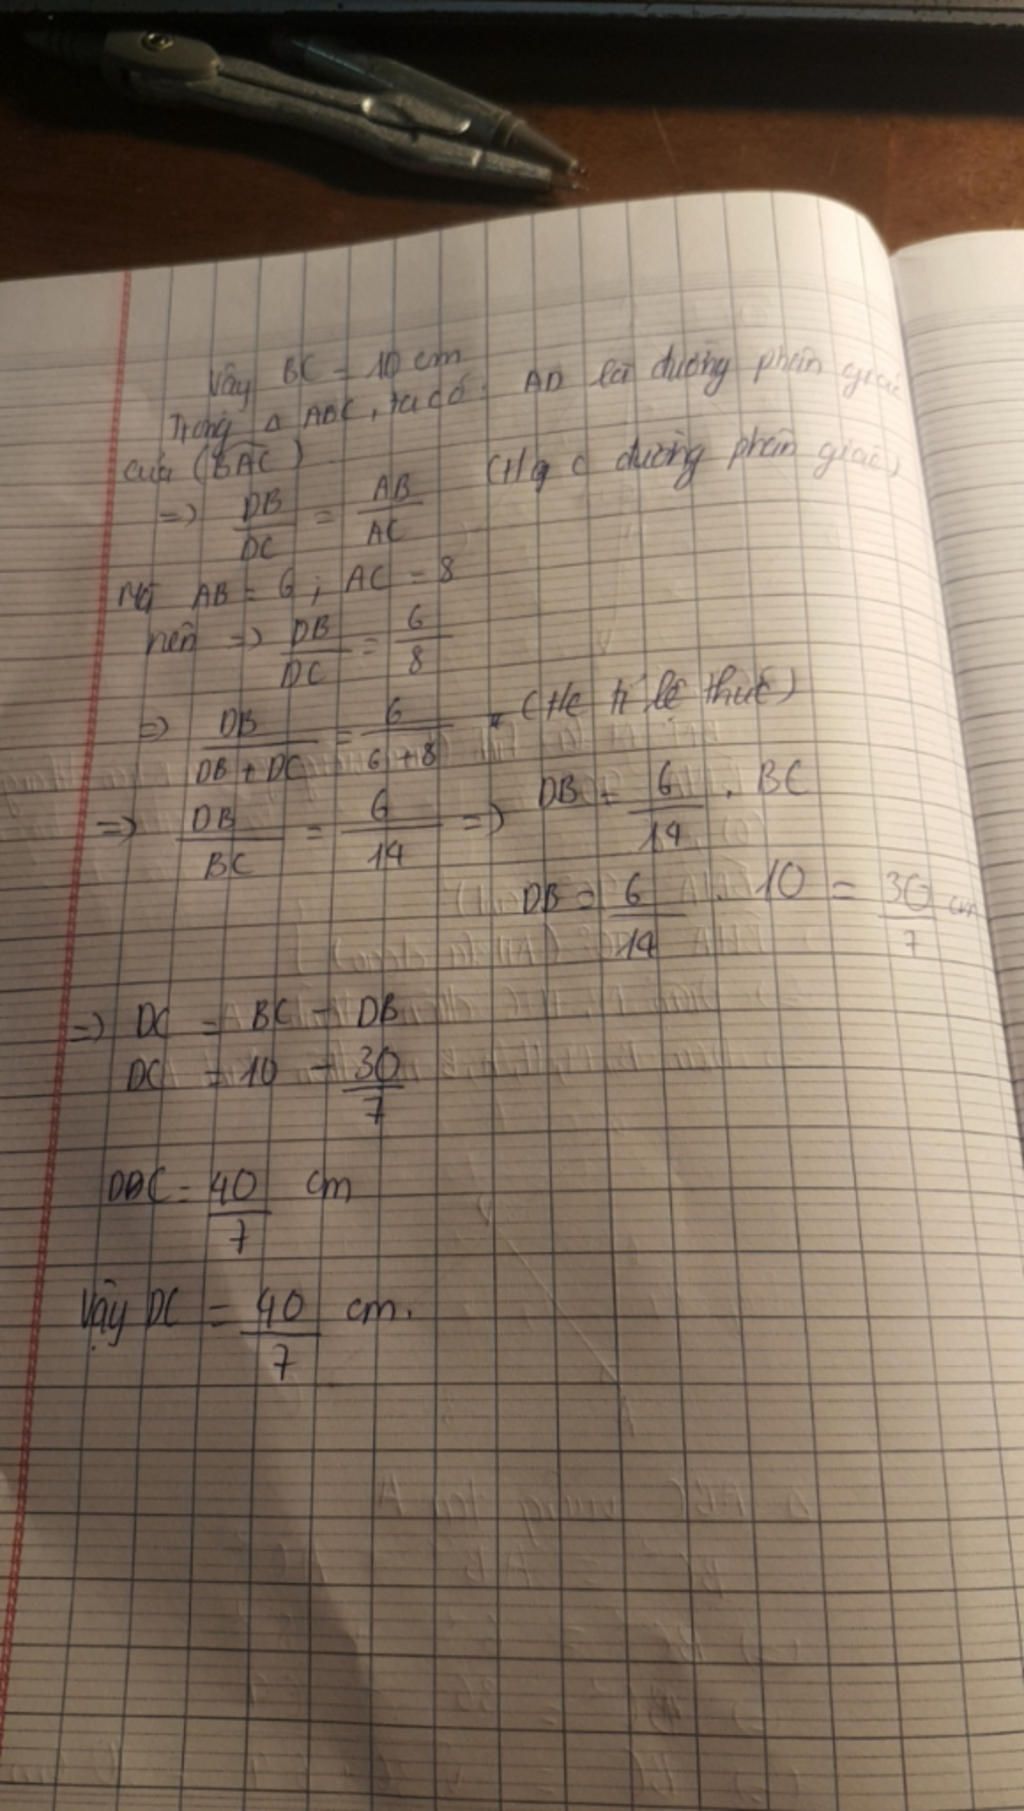 Vậy BC = 10 cm
Trong Δ ABC, ta có: AD là đường phân giác
của (BAC)
=> DB/DC = AB/AC (Hq c đường phân giác)
Mà AB = 6 ; AC = 8
nên => DB/DC = 6/8
=> DB/DB + DC = 6/6+8 (Hc tỉ lệ thức)
=> DB/BC = 6/14 => DB = 6/14 . BC
DB = 6/14 . 10 = 30/7 cm
=> DC = BC - DB
DC = 10 - 30/7
DC = 40/7 cm
Vậy DC = 40/7 cm.